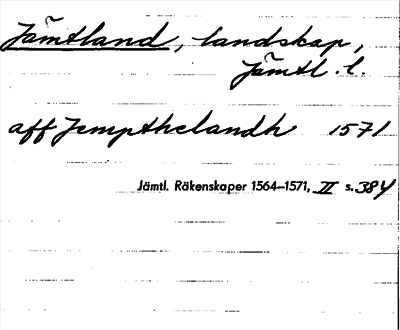 Jämtland, landskap,
Jämtl. l.
aff Jempthelandh 1571
Jämtl. Räkenskaper 1564–1571, II s. 384